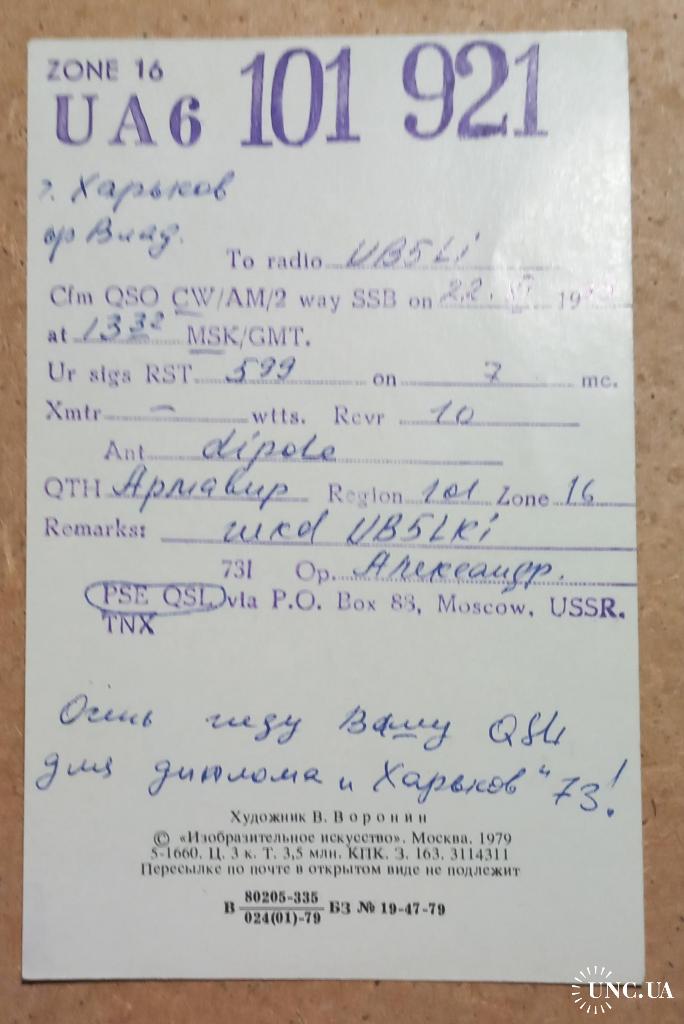 ZONE 16
UA6 101 921
г. Харьков
ор Влад.
To radio UB5Li
Cfm QSO CW/AM/2 way SSB on 22. 19
at 13 32 MSK/GMT.
Ur sigs RST 599 on 7 mc.
Xmtr — wtts. Rcvr 10
Ant dipole
QTH Армавир Region 101 Zone 16
Remarks: wkd UB5LKi
73! Op. Александр.
PSE QSL via P.O. Box 88, Moscow, USSR.
TNX
Очень жду Вашу QSL
для диплома „Харьков" 73!
Художник В. Воронин
© «Изобразительное искусство». Москва. 1979
5-1660. Ц. 3 к. Т. 3,5 млн. КПК. З. 163. 3114311
Пересылке по почте в открытом виде не подлежит
В 80205-335 БЗ № 19-47-79
024(01)-79
UNC.UA